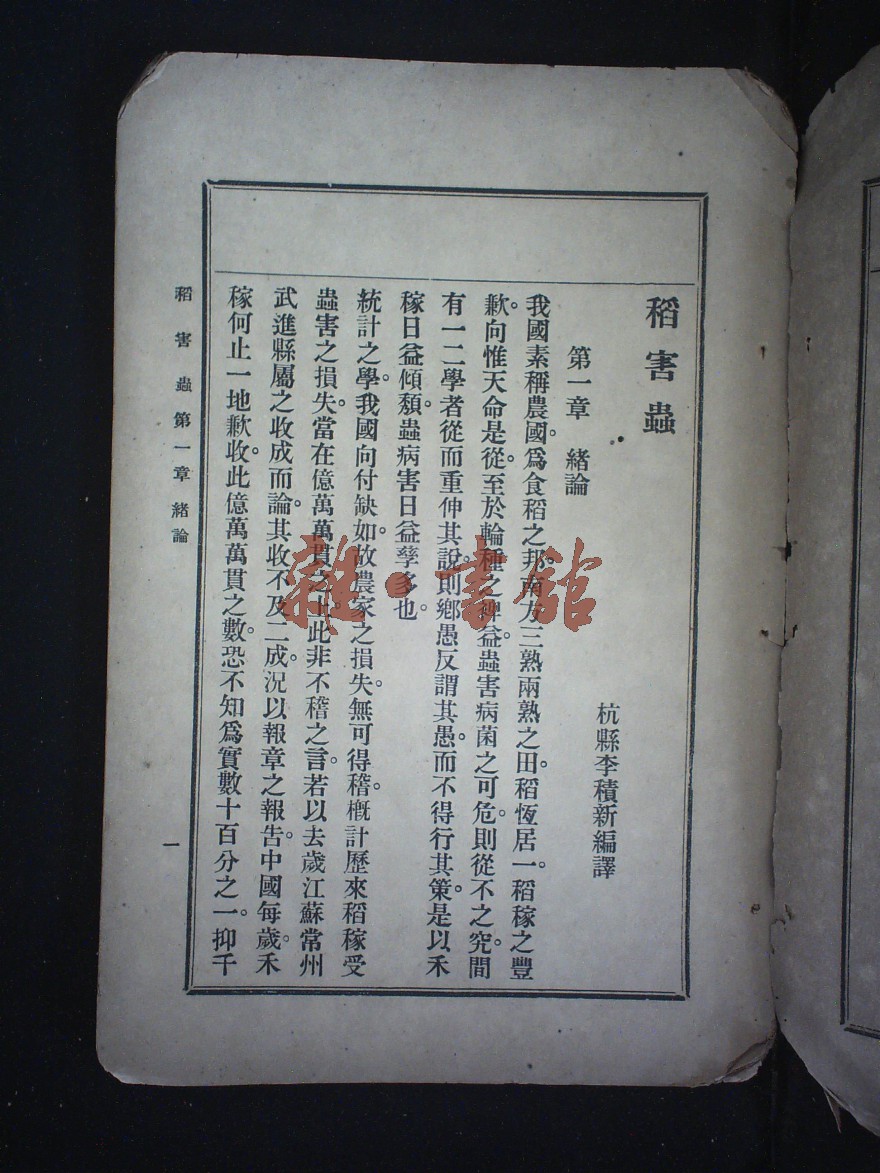 稻害蟲
杭縣李積新編譯
第一章　緒論
我國素稱農國。爲食稻之邦。南方三熟兩熟之田。稻恆居一。稻稼之豐
歉。向惟天命是從。至於輪種之裨益。蟲害病菌之可危。則從不之究。間
有一二學者從而重伸其說。則鄉愚反謂其愚。而不得行其策。是以禾
稼日益傾頹。蟲病害日益孳多也。
統計之學。我國向付缺如。故農家之損失。無可得稽。槪計歷來稻稼受
蟲害之損失。當在億萬萬貫之上。此非不稽之言。若以去歲江蘇常州
武進縣屬之收成而論。其收不及二成。況以報章之報告。中國每歲。禾
稼何止一地歉收。此億萬萬貫之數。恐不知爲實數十百分之一。抑千
稻害蟲　第一章　緒論
一
雜·書館